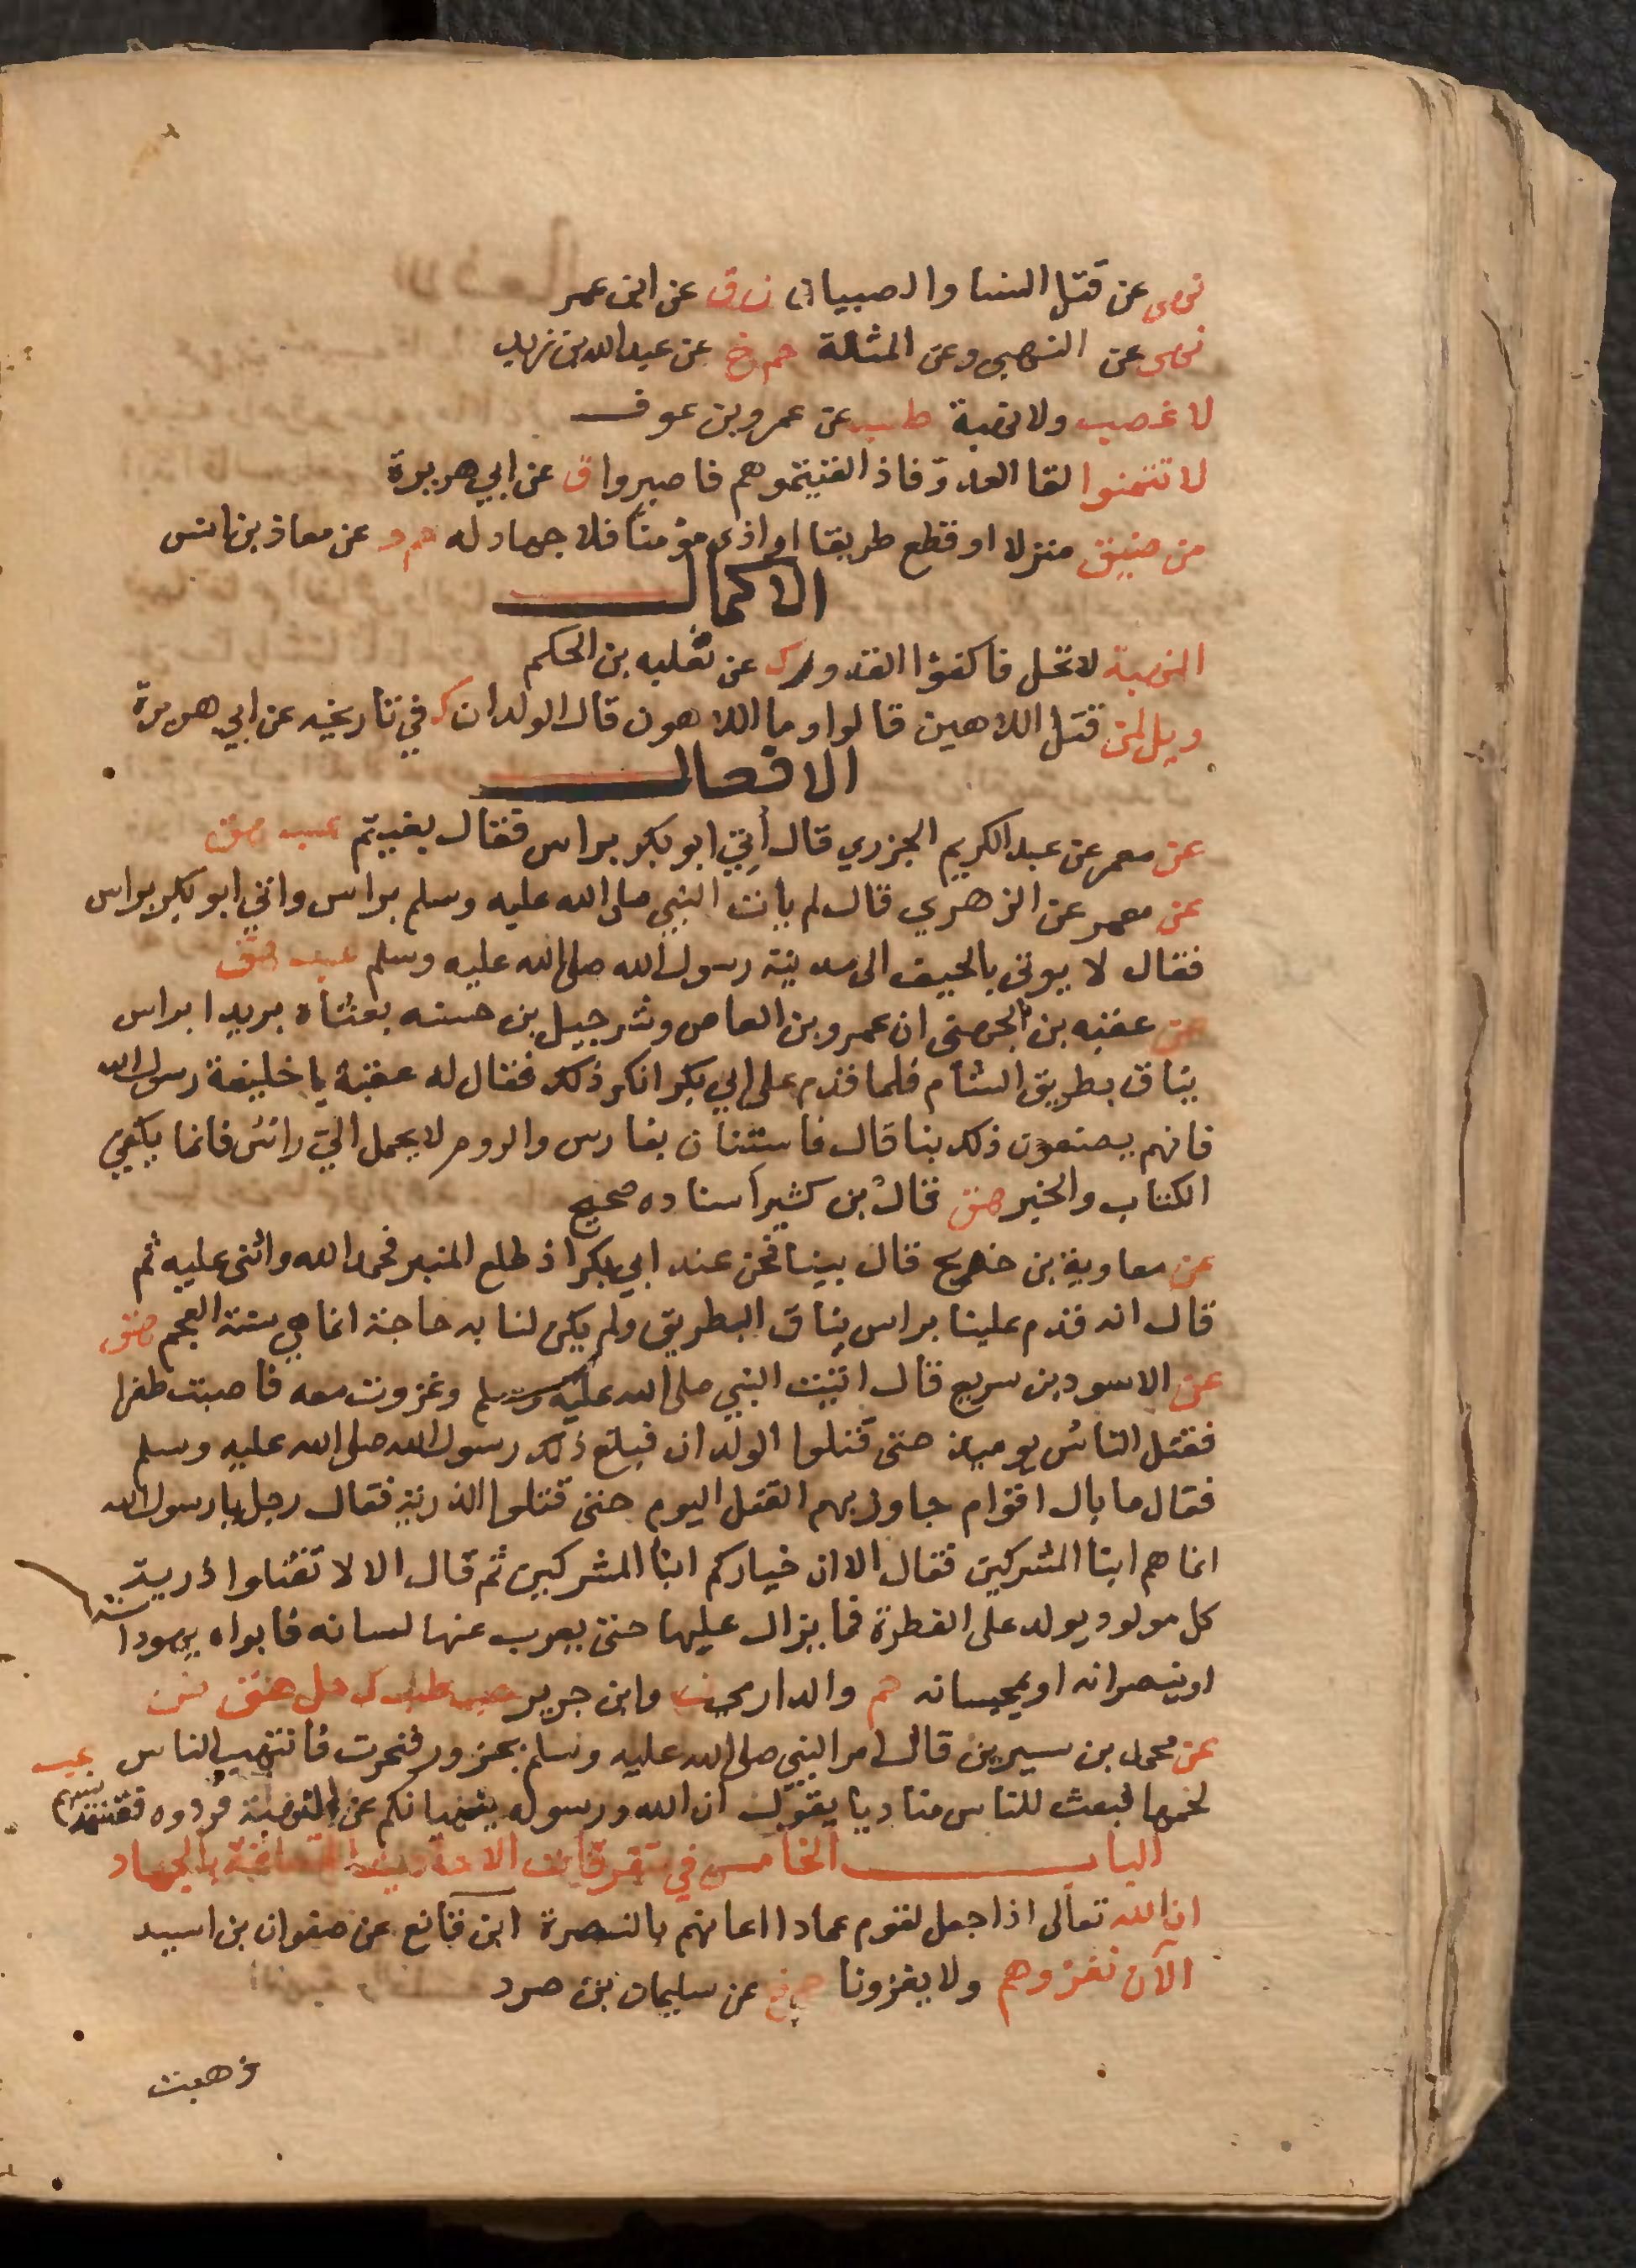 نهى عن قتل النسا والصبيان ن ق عن ابن عمر
نهى عن النهبى وعن المثلة حم خ عن عبدالله بن يزيد
لا غصب ولا نهبة طب عن عمرو بن عوف
لا تتمنوا لقا العدو فاذا لقيتموهم فاصبروا ق عن ابي هريرة
من ضيق منزلا او قطع طريقا او اذى مؤمنا فلا جهاد له حم د عن معاذ بن انس
الاكمال
النهبة لا تحل فاكفؤا القدور ك عن ثعلبه بن الحكم
ويل لمن قتل اللاهين قالوا وما اللاهون قال الولدان ك في تاريخه عن ابي هريرة
الافعال
عن معمر عن عبد الكريم الجزري قال أتي ابو بكر براس فقال بغيتم عب هق
عن معمر عن الزهري قال لم يأت النبي صلى الله عليه وسلم براس واتي ابو بكر براس
فقال لا يوتى بالجيف الى مدينة رسول الله صلى الله عليه وسلم عب هق
عن عقبه بن الجهنى ان عمرو بن العاص وشرحبيل بن حسنه بعثاه بريدا براس
يناق بطريق الشام فلما قدم على ابي بكر انكر ذلك فقال له عقبة يا خليفة رسول الله
فانهم يصنعون ذلك بنا قال فاستنان بفارس والروم لا يحمل اليّ رائس فانما يكفي
الكتاب والخبر هق قال بن كثير اسناده صحيح
عن معاوية بن خديج قال بينا نحن عند ابي بكر اذ طلع المنبر فحمد الله واثنى عليه ثم
قال انه قدم علينا براس يناق البطريق ولم يكن لنا به حاجة انما هي سنة العجم هق
عن الاسود بن سريع قال اتيت النبي صلى الله عليه وسلم وغزوت معه فاصبت ظفرا
فقتل الناس يوميذ حتى قتلوا الولدان فبلغ ذلك رسول الله صلى الله عليه وسلم
فقال ما بال اقوام جاوز بهم القتل اليوم حتى قتلوا الذرية فقال رجل يا رسول الله
انما هم ابنا المشركين فقال الا ان خياركم ابنا المشركين ثم قال الا لا تقتلوا ذرية
كل مولود يولد على الفطرة فما يزال عليها حتى يعرب عنها لسانه فابواه يهودانه
او ينصرانه او يمجسانه حم والدارمي ن وابن جرير حب طب ك حل هق ض
عن محمد بن سيرين قال امر النبي صلى الله عليه وسلم بجزور فنحرت فانتهب الناس عب
لحمها فبعث للناس مناديا يقول ان الله ورسوله ينهيانكم عن النهبة فردوه فقسمه بينهم
الباب الخامس في متفرقات الاحاديث المتعلقة بالجهاد
ان الله تعالى اذا جعل لقوم عمادا اعانهم بالنصرة ابن قانع عن صفوان بن اسيد
الآن نغزوهم ولا يغزونا حم خ عن سليمان بن صرد
ذهبت